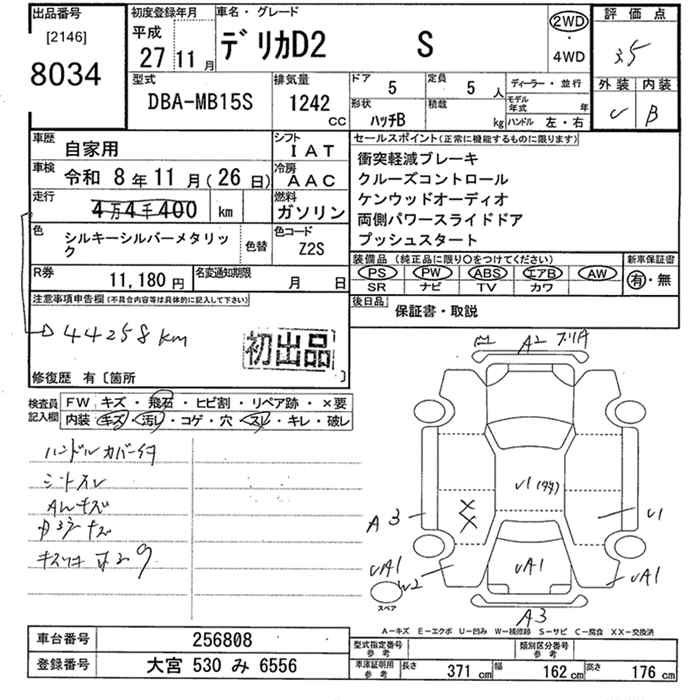 出品番号
[2146]
8034
初度登録年月
平成
27 11 月
車名・グレード
デリカD2 S
2WD
・
4WD
評価点
3.5
外装 内装
B
型式
DBA-MB15S
排気量
1242 CC
ドア
5
定員
5 人
ディーラー・並行
形状
ハッチB
積載
kg
モデル年式 年
ハンドル 左・右
車歴
自家用
シフト
IAT
車検
令和 8年 11月(26日)
冷房
AAC
走行
4万4千400 km
燃料
ガソリン
色
シルキーシルバーメタリック
色替
色コード
Z2S
R券
11,180 円
名変通知期限
月 日
セールスポイント(正常に機能するものに限ります)
衝突軽減ブレーキ
クルーズコントロール
ケンウッドオーディオ
両側パワースライドドア
プッシュスタート
装備品 (純正品に限り○をつけてください)
PS PW ABS エアB AW
SR ナビ TV カワ
新車保証書
有・無
後日品
保証書・取説
注意事項申告欄(不具合内容等は具体的に記入して下さい)
44258km
初出品
修復歴 有〔箇所 〕
検査員記入欄
FW キズ・飛石・ヒビ割・リペア跡・×要
内装・キズ・汚レ・コゲ・穴・スレ・キレ・破レ
ハンドルカバー付
シートスレ
A2
A3
U1
U1
UA1
UA1
UA1
A3
スペア
A-キズ E-エクボ U-凹み W-補修跡 S-サビ C-腐食 XX-交換済
車台番号
256808
登録番号
大宮 530 み 6556
型式指定番号
参考
類別区分番号
参考
車庫証明用
参考
長さ 371 cm 幅 162 cm 高さ 176 cm